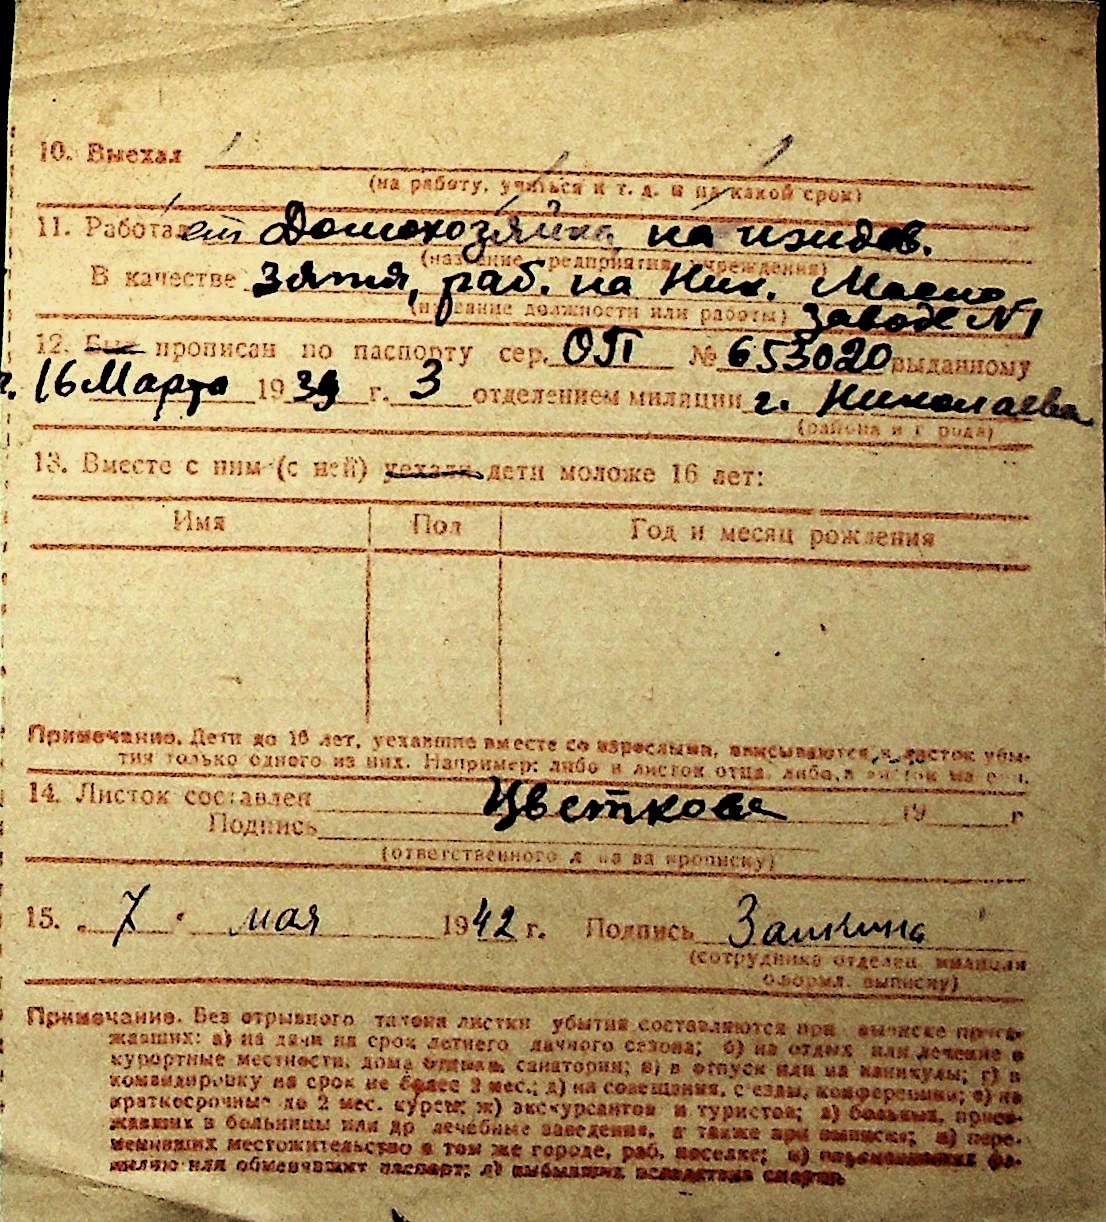 10. Выехал
(на работу, учиться и т. д. и на какой срок)
11. Работает Домохозяйка, на иждив.
(название предприятия, учреждения)
В качестве Зятя, раб. на Ник. Масло
(название должности или работы) Заводе № 1
12. Был прописан по паспорту сер. ОП № 653020 выданному
16 Марта 1939 г. 3 отделением милиции г. Николаева
(района и города)
13. Вместе с ним (с ней) уехали дети моложе 16 лет:
Имя Пол Год и месяц рождения
Примечание. Дети до 16 лет, уехавшие вместе со взрослыми, вписываются в листок убы-
тия только одного из них. Например: либо в листок отца, либо в листок матери.
14. Листок составлен Цветкова 19 г
Подпись
(ответственного лица за прописку)
15. „7" мая 1942 г. Подпись
(сотрудника отделен. милиции
оформл. выписку)
Примечание. Без отрывного талона листки убытия составляются при выписке приез-
жавших: а) на дачи на срок летнего дачного сезона; б) на отдых или лечение в
курортные местности, дома отдыха, санатории; в) в отпуск или на каникулы; г) в
командировку на срок не более 2 мес.; д) на совещания, съезды, конференции; е) на
краткосрочные до 2 мес. курсы; ж) экскурсантов и туристов; з) больных, приез-
жавших в больницы или др лечебные заведения, а также при выписке; и) пере-
менивших местожительство в том же городе, раб. поселке; к) переменивших фа-
милию или обменявших паспорт; л) выбывших вследствие смерти.